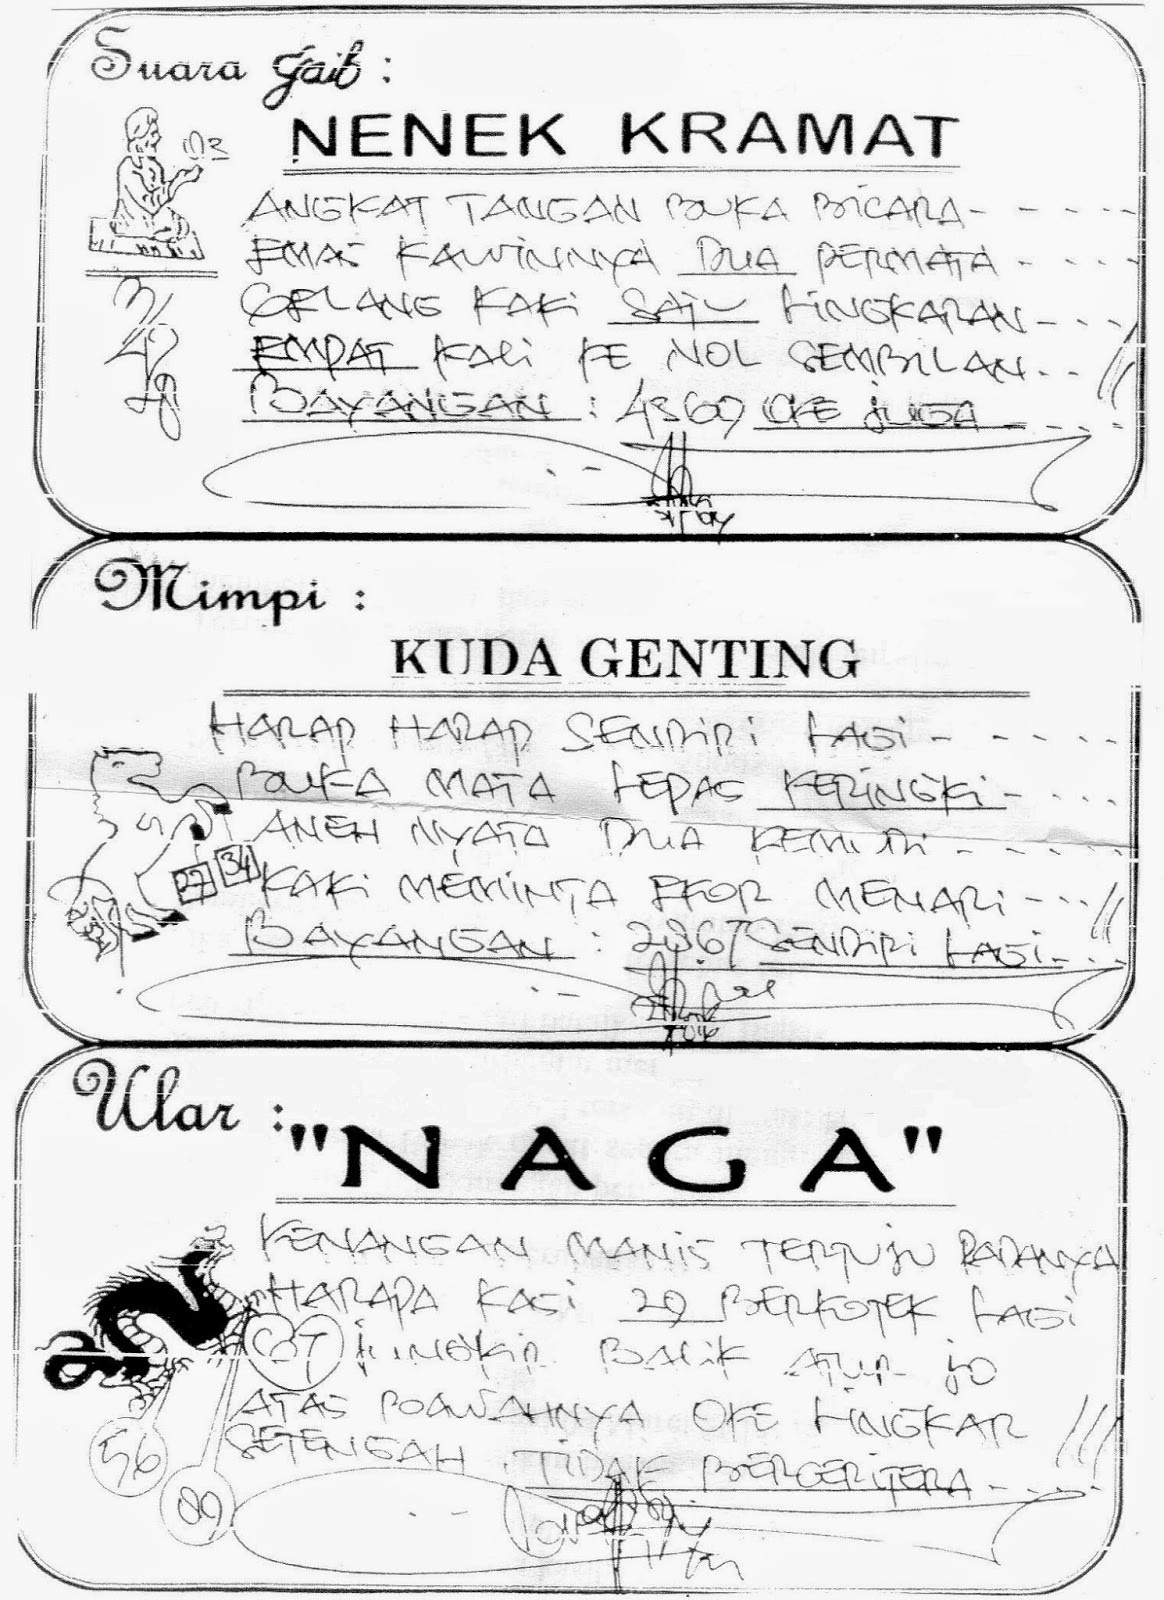 Suara Gaib :
NENEK KRAMAT
ANGKAT TANGAN BUKA BICARA
EMAS KAWINNYA DUA PERMATA
GELANG KAKI SATU LINGKARAN
EMPAT KALI KE NOL SEMBILAN
BAYANGAN : 4369 OKE JUGA
Mimpi :
KUDA GENTING
HARAP HARAP SENDIRI LAGI
BUKA MATA LEPAS KERINGKI
ANEH NYATA DUA KEMIRI
27 34
KAKI MEMINTA EKOR MENARI
BAYANGAN : 2867 SENDIRI LAGI
Ular :
"NAGA"
KENANGAN MANIS TERTUJU PADANYA
HARAPA KASI 29 BERKOTEK LAGI
JUNGKIR BALIK ATUR JO
ATAS BOAWAHNYA OKE LINGKAR
SETENGAH TIDAK BERCERITERA
56
89